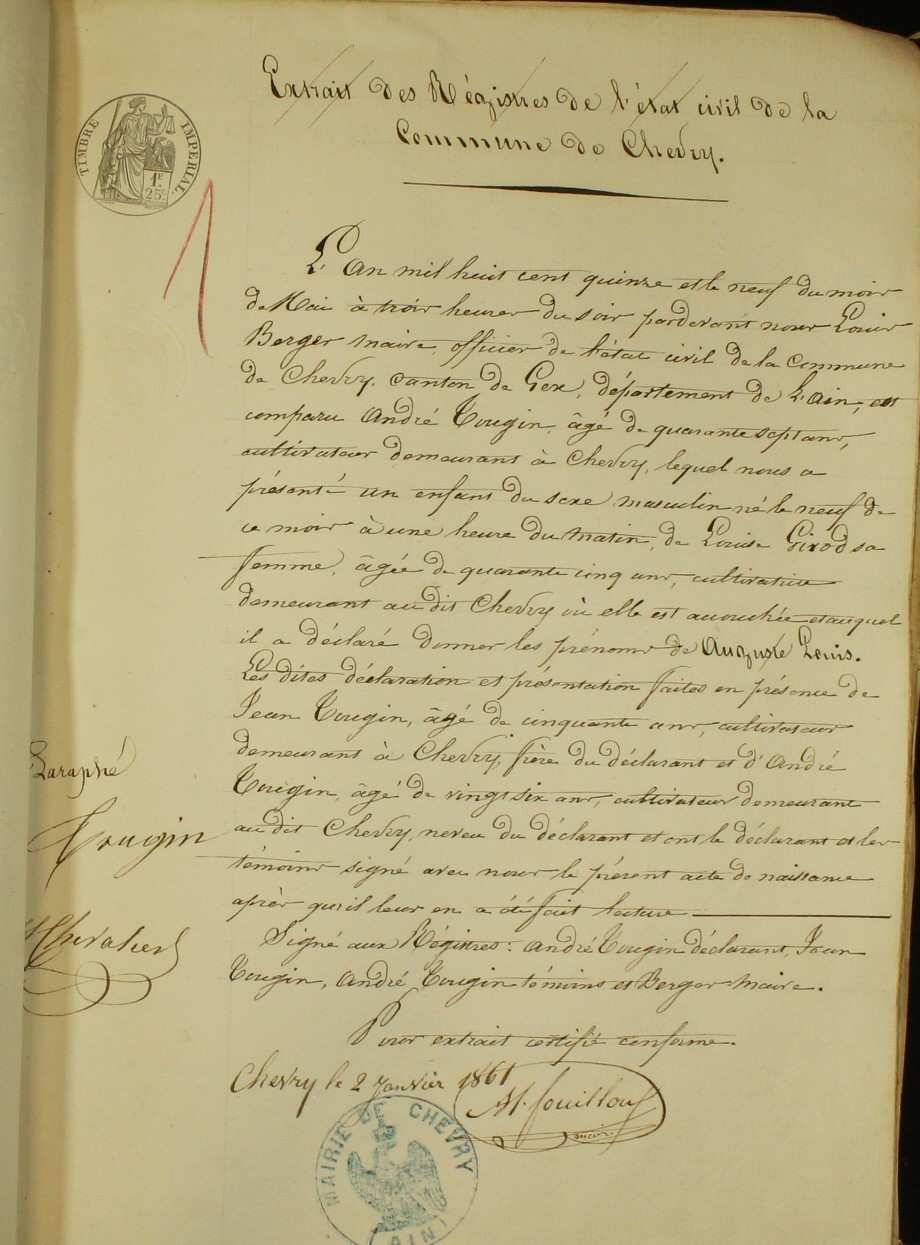 Extrait des Régistres de l'état civil de la
Commune de Chevry.
TIMBRE IMPERIAL.
1F.
25C.
1
L'An mil huit cent quinze et le neuf du mois
de Mai à trois heures du soir pardevant nous Louis
Berger maire, officier de l'état civil de la commune
de Chevry, canton de Gex, département de L'Ain, est
comparu André Tougin, âgé de quarante sept ans,
cultivateur demeurant à Chevry, lequel nous a
présenté un enfant du sexe masculin né le neuf de
ce mois à une heure du matin, de Louise Girod sa
femme, âgée de quarante cinq ans, cultivatrice
demeurant au dit Chevry où elle est accouchée et auquel
il a déclaré donner les prénoms de Auguste Louis.
Les dites déclaration et présentation faites en présence de
Jean Tougin, âgé de cinquante ans, cultivateur
demeurant à Chevry, frère du déclarant et d'André
Tougin, âgé de vingt six ans, cultivateur demeurant
au dit Chevry, neveu du déclarant et ont le déclarant et les
témoins signé avec nous le présent acte de naissance
après qu'il leur en a été fait lecture
Signé aux Régistres: André Tougin déclarant, Jean
Tougin, André Tougin témoins et Berger Maire.
Pour extrait certifié conforme.
Chevry le 2 Janvier 1861
maire
Paraphé
Tougin
Chevalier
MAIRIE DE CHEVRY
(AIN)